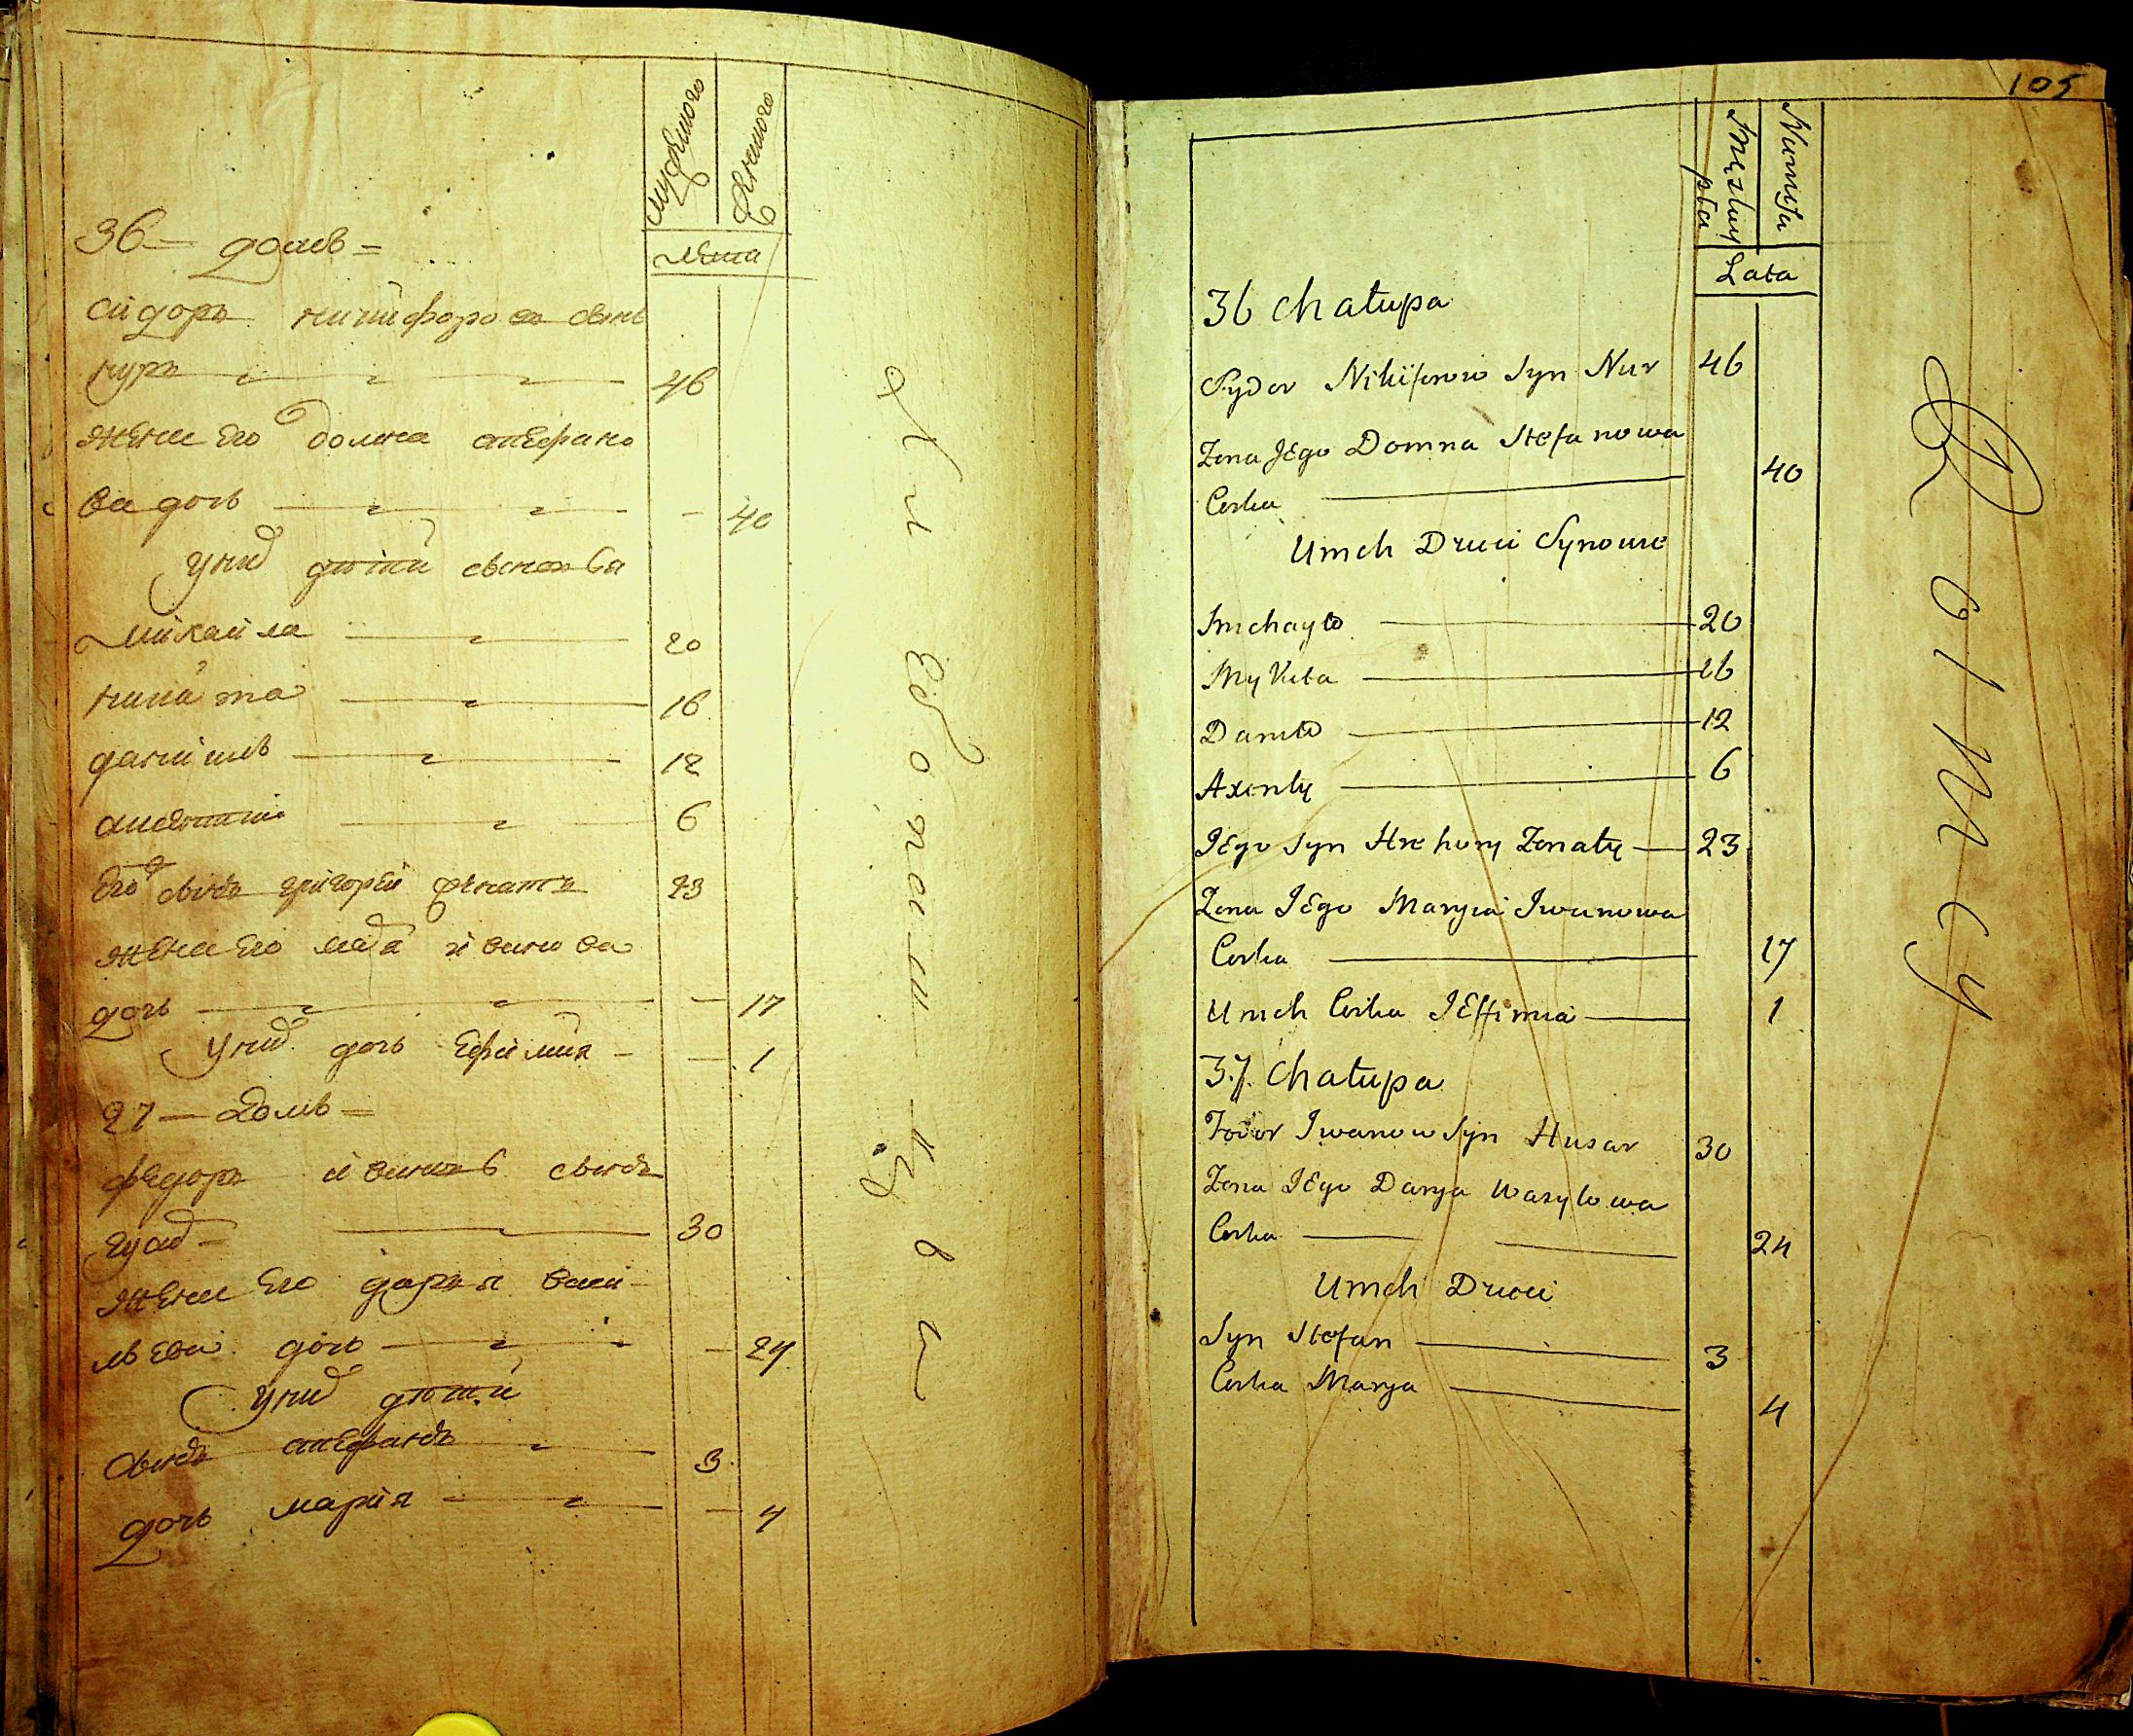 мужскаго
женскаго
лѣта
36 — домъ =
сидоръ никифоровъ сынъ
нуръ 46
жена его домна стефано
ва дочь — 40
у них дѣти сыновья
михайла 20
никита 16
данило 12
6
его сынъ григорей женатъ 23
жена его марья иванова
дочь — 17
у них дочь ефимия — — 1
37 — домъ =
федоръ ивановъ сынъ
гусар — 30
жена его дарья васи-
льева дочь — 24
у них дѣти
сынъ стефанъ 3
дочь мария — 4
105
Męzkiey
płci
Lata
36 chałupa
Sydor Nikiforow Syn Nur 46
Zona JEgo Domna Stefanowa
Corka 40
Umch Dzieci Synowie
Michayło 20
Mykita 16
Daniło 12
Axenty 6
JEgo Syn Hrehory Zonaty 23
Zona JEgo Marya Iwanowa
Corka 17
Umch Corka JEffimia 1
37. Chałupa
Fodor Iwanow Syn Husar 30
Zona JEgo Darya Wasylowa
Corka 24
Umch Dzieci
Syn Stefan 3
Corka Marya 4
Rolnicy